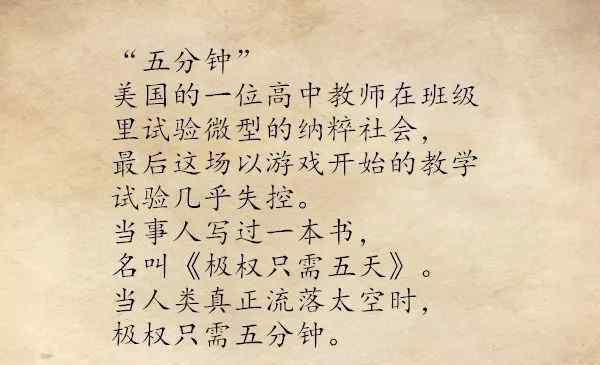 “五分钟”
美国的一位高中教师在班级
里试验微型的纳粹社会，
最后这场以游戏开始的教学
试验几乎失控。
当事人写过一本书，
名叫《极权只需五天》。
当人类真正流落太空时，
极权只需五分钟。